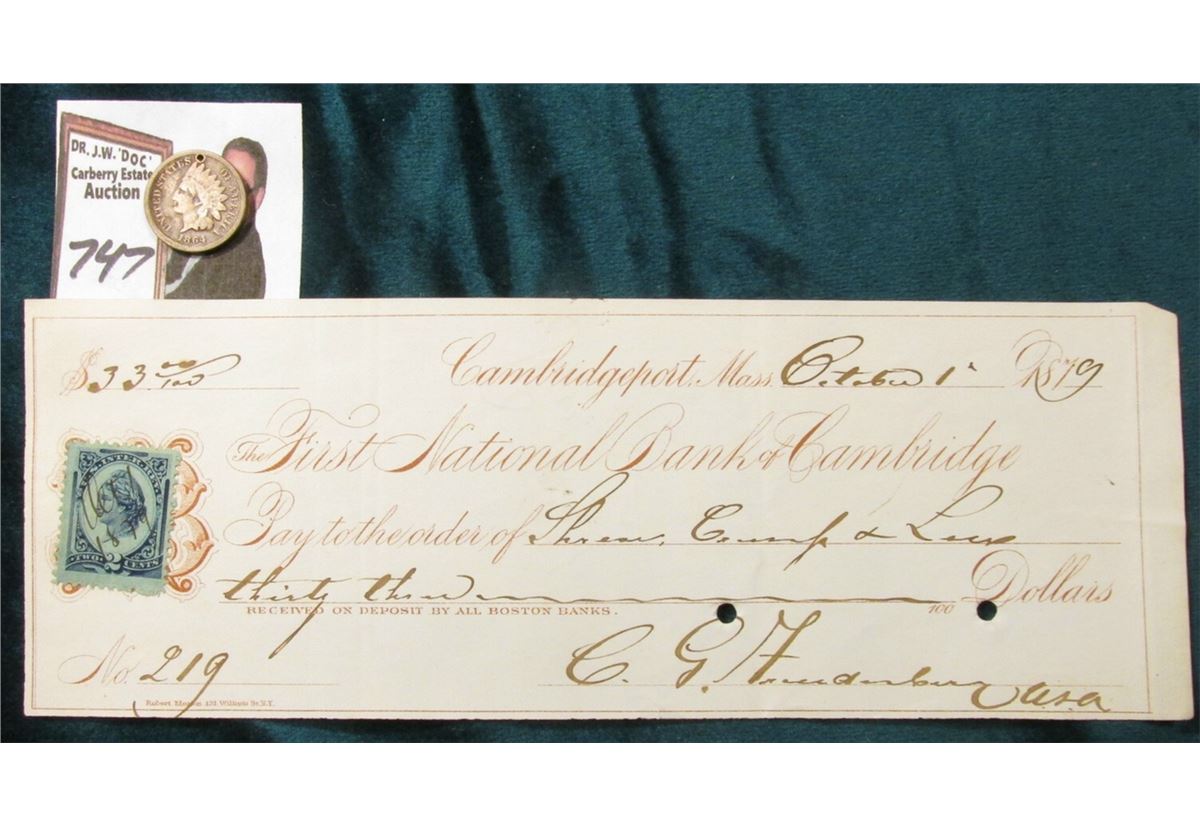 DR. J.W. 'DOC'
Carberry Estate
Auction
747
UNITED STATES OF AMERICA
1864
$33 00/100
Cambridgeport, Mass. October 1st 1879
The First National Bank of Cambridge
Pay to the order of Shreve, Crump & Low
thirty three 100 Dollars
RECEIVED ON DEPOSIT BY ALL BOSTON BANKS.
U.S. INTER. REV.
Oct
TWO 2 CENTS
No. 219
C. G.
Robert 131 William St. N.Y.